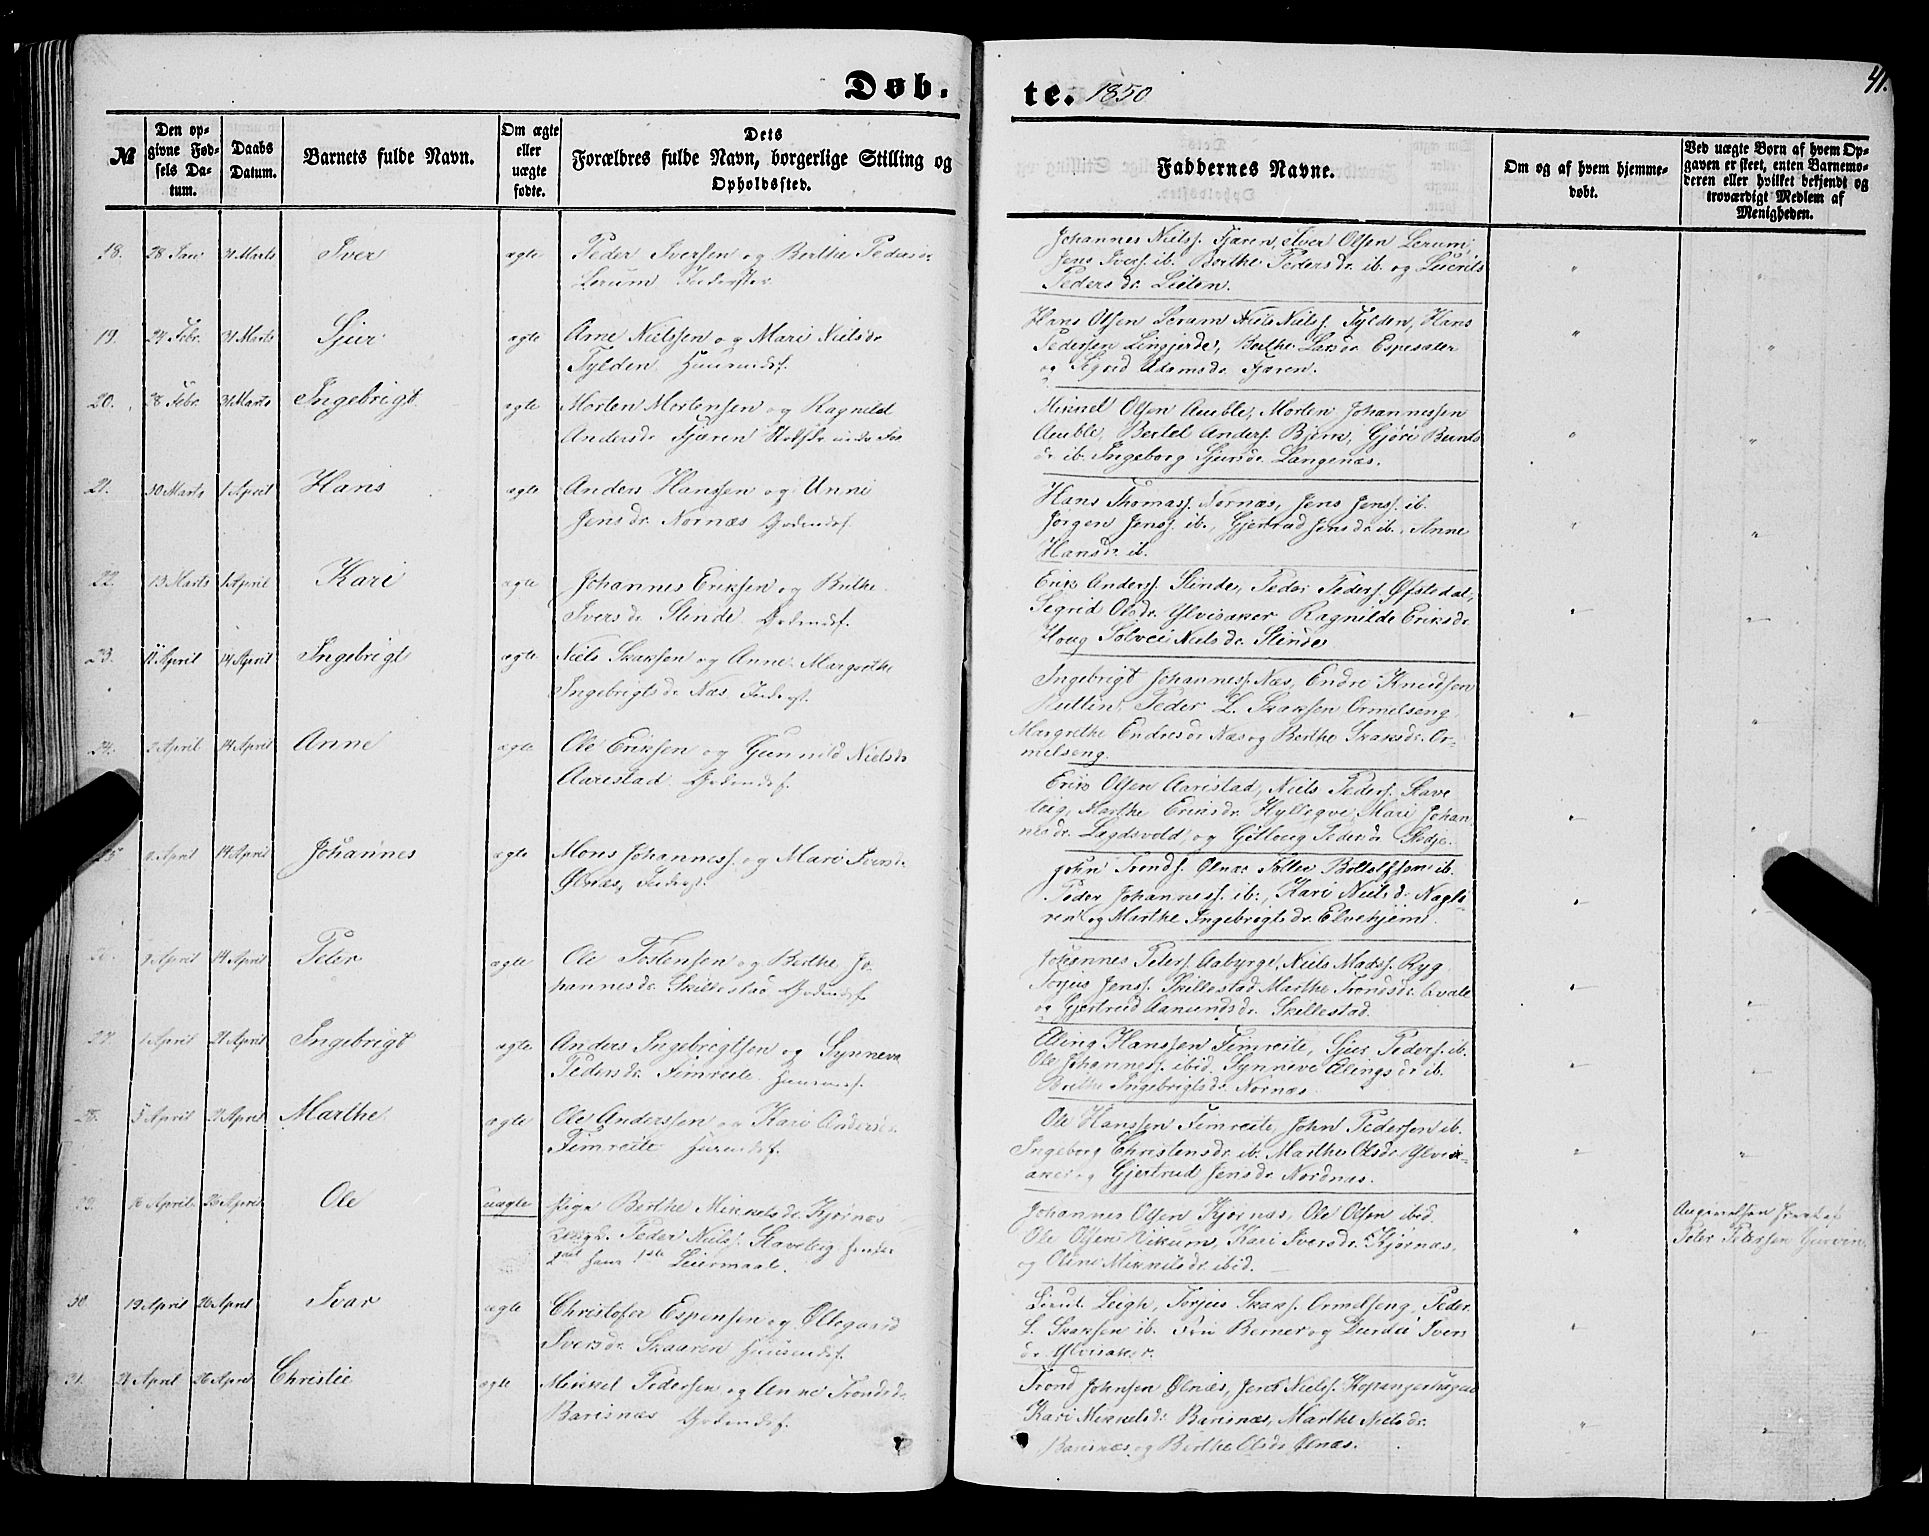 Døb.
te. 1850
41.
№
Den opgivne Fødsels Datum.
Daabs Datum.
Barnets fulde Navn.
Om ægte eller uægte fødte.
Dets Forældres fulde Navn, borgerlige Stilling og Opholdssted.
Faddernes Navne.
Om og af hvem hjemmedøbt.
Ved uægte Børn af hvem Opgaven er skeet, enten Barnemoderen eller hvilket bekjendt og troværdigt Medlem af Menigheden.
18. 28 Jan 31 Marts Iver ægte Peder Iversen og Berthe Pedersdr
Lerum
Johannes Nielss. Fjæren, Iver Olsen Lerum,
Jens Iverss. ib. Berthe Pedersdr. ib. og
Pedersdr. Lieten.
19. 24 Febr. 31 Marts Sjur ægte Arne Nielssen og Mari Nielsdr
Fylden Huusmdsf.
Hans Olsen Niels Nielss. Fylden, Hans
Pedersen Lingjerde, Berthe Larsdr Espesæter
og Sigrid Adamsdr. Fjæren.
20. 28 Febr. 31 Marts Ingebrigt ægte Morten Mortensen og Ragnild
Andersdr Fjæren
Mikkel Olsen Amble, Morten Johannessen
Amble, Bertel Anderss. Bjørn, Gjøri Bernts
dr ib. Ingeborg Sjursdr Langenæs.
21. 30 Marts 1 April Hans ægte Anders Hanssen og Unni
Jensdr. Nornæs Gbdmdsf.
Hans Thomass. Nornæs, Jens Jenss. ib.
Jørgen Jenss. ib., Gjertrud Jensdr. ib., Anne
Hansdr ib.
22. 13 Marts 1 April Kari ægte Johannes Eriksen og Brithe
Iversdr Slinde
Erik Anderss. Slinde, Peder Pederss. Øfstedal,
Sigrid Olsdr. Ylvisaker Ragnilde Eriksdr
Houg Solvei Nielsdr. Slinde
23. 11 April 14 April Ingebrigt ægte Niels Skaksen og Anne Margrethe
Ingebrigtsdr Næs
Ingebrigt Johanness. Næs, Endre Knudsen
Ruttin, Peder L. Skaksen Ormelseng,
Margrethe Endresdr Næs og Berthe Skaksdr. Or-
melseng.
24. 2 April 14 April Anne ægte Ole Eriksen og Gunnild Nielsdr
Aarestad
Erik Olsen Aarestad, Niels Pederss. Stave
teig, Marthe Eriksdr. Hyllegve, Mari Johan
nesdr. Lægdsvold, og Pedersdr Stedje.
25. April 14 April Johannes ægte Mons Johanness. og Mari Iversdr
Ølnæs,
John Tronds. Ølnæs Bottolfssen ib.
Peder Johanness. ib., Kari Nielsdr. Nagle
ren og Marthe Ingebrigtsdr. Elvehjem.
26. 9 April 14 April Peter ægte Ole Tostensen og Berthe Jo
hannesdr. Skillestad
Johannes Peters. Aabyrge, Niels Madss. Ryg
Torjus Jenss. Skillestad Marthe Trondsdr. Qvale
og Gjertrud Aamundsdr. Skillestad.
27. 1 April 21 April Ingebrigt ægte Anders Ingebrigtsen og Synneva
Pedersdr. Fimreite
Elling Hanssen Fimreite, Sjur Pederss. ib.
Ole Johanness. ibid. Synneve Elingsdr ib.
Brithe Ingebrigtsdr. Nornæs.
28. 5 April 21 April Marthe ægte Ole Anderssen og Kari Andersdr.
Fimreite
Ole Hanssen Fimreite, John Pedersen ib.
Ingeborg Christensdr. ib. Marthe Olsdr. Ylvis-
aker og Gjertrud Jensdr. Nordnæs.
29. 16 April. 26 April Ole uægte Pige Berthe Mikkelsdr. Kjørnæs
Peder Nielss. Staveteig
hans 1ste Leiermaal.
Johannes Olsen Kjørnæs, Ole Olsen ibid.
Ole Olsen Vikum, Kari Iversdr. Kjørnæs,
og Oline Mikkelsdr. ibid.
Angivelsen skeet af
Peter Petersen
30. 19 April 26 April Ivar ægte Christofer Espensen og Øllegaard
Iversdr. Skaaren
Lieut. Leigh, Torjus Skaks. Ormelseng, Peder
L. Skaksen ib. Berner og Durdei Ivers
dr. Ylvisaker.
31. 21 April 26 April Christie ægte Mikkel Pedersen og Anne Trondsdr
Barsnæs
Trond Johnsen Ølnæs, Jens Nielss. Kopangerhagen
Kari Mikkelsdr. Barsnæs, Marthe Nielsdr.
Barsnæs og Berthe Olsdr Ølnæs.